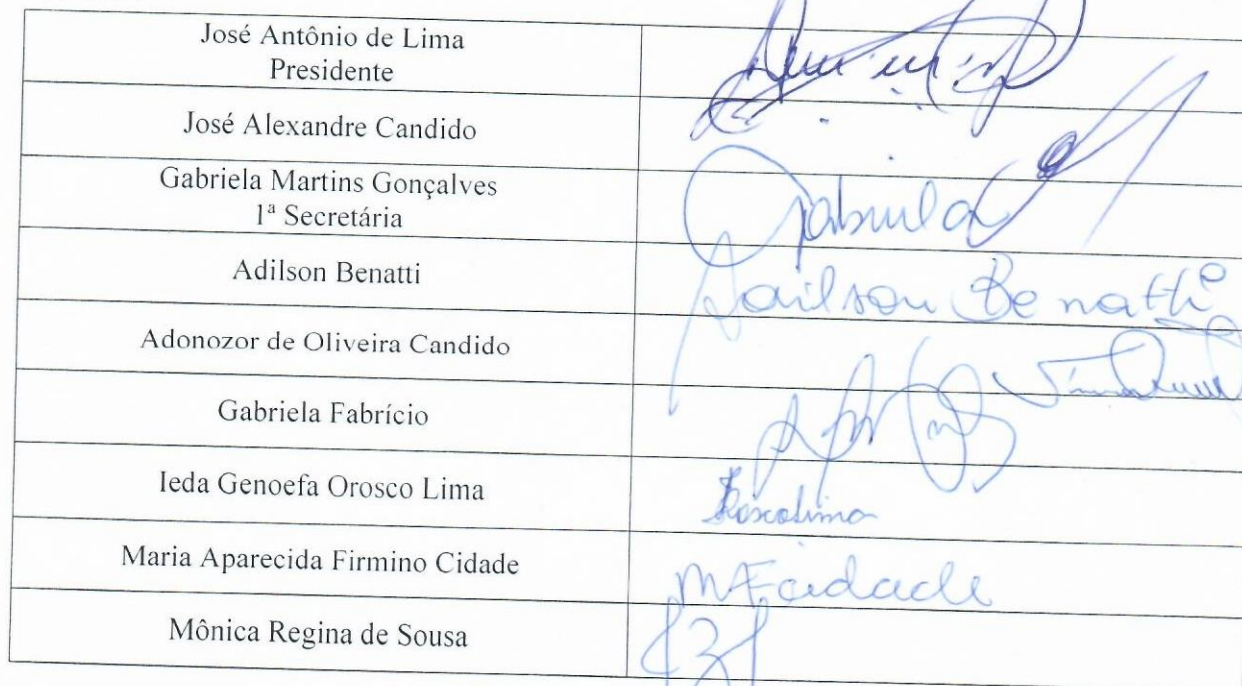 José Antônio de Lima
Presidente
José Alexandre Candido
Gabriela Martins Gonçalves
1ª Secretária
Gabriela
Adilson Benatti
Adilson Benatti
Adonozor de Oliveira Candido
Gabriela Fabrício
Ieda Genoefa Orosco Lima
Maria Aparecida Firmino Cidade
MFcidade
Mônica Regina de Sousa